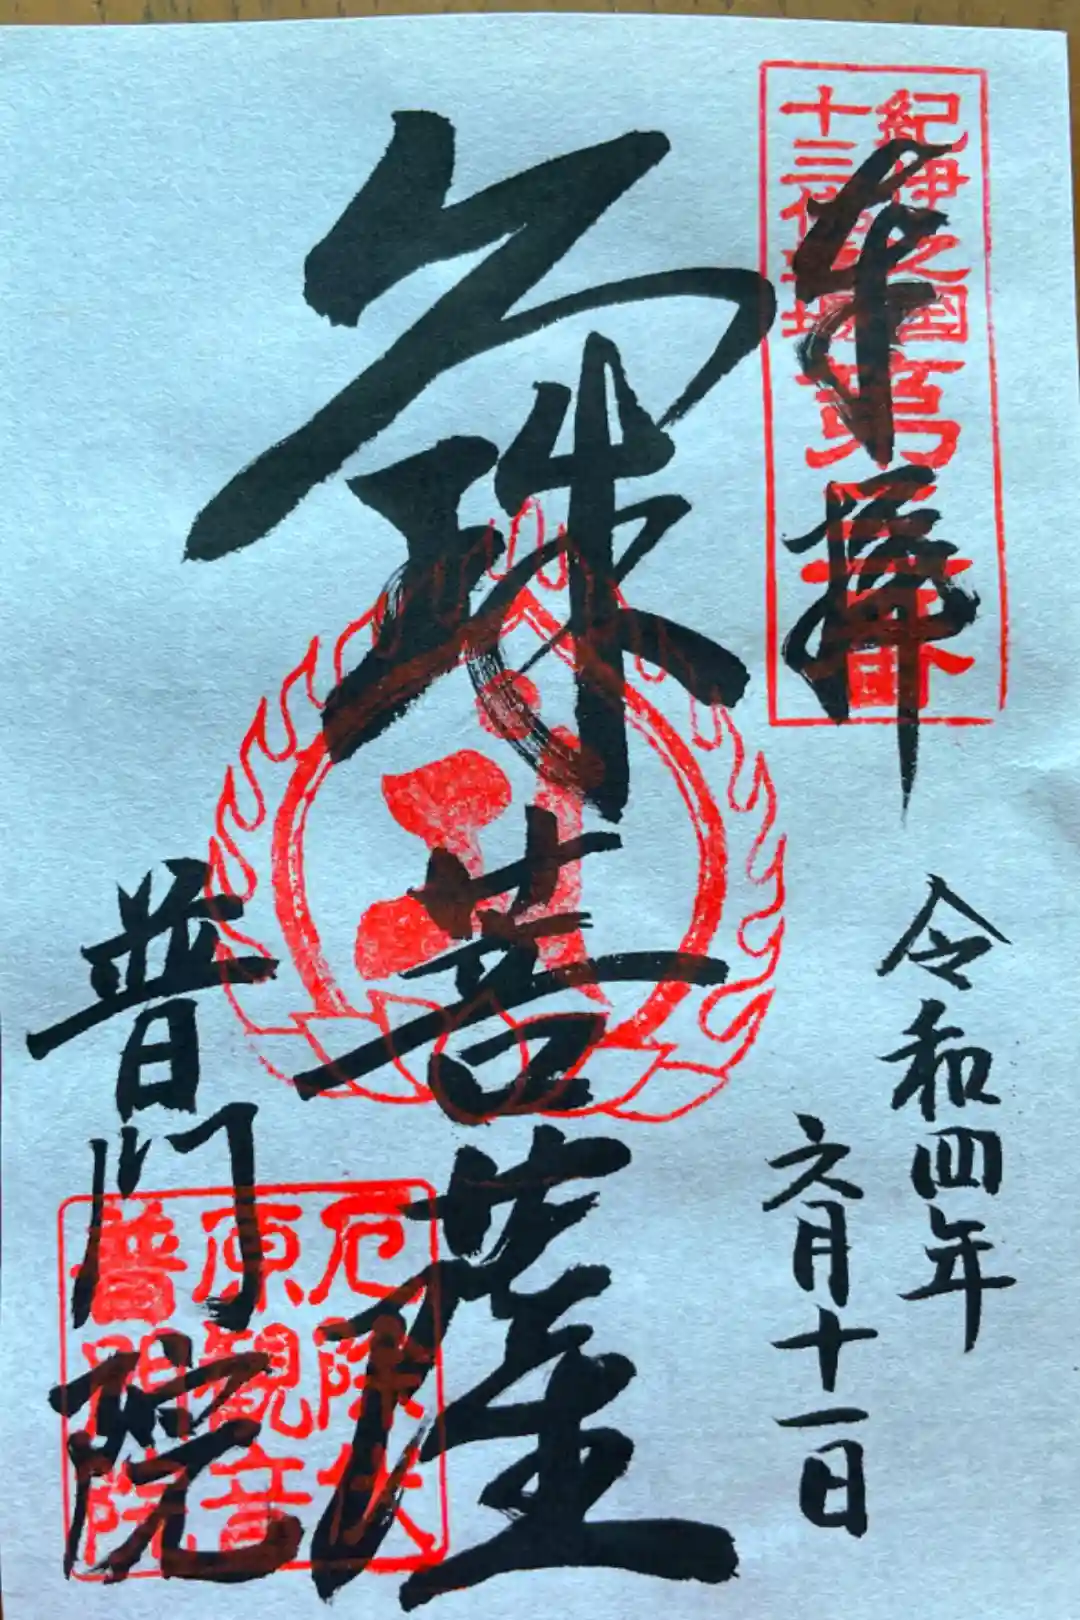 奉拝
紀伊之国
十三佛霊場
第 番
令和四年
六月十一日
文殊菩薩
普門院
厄除伏
原観音
普門院